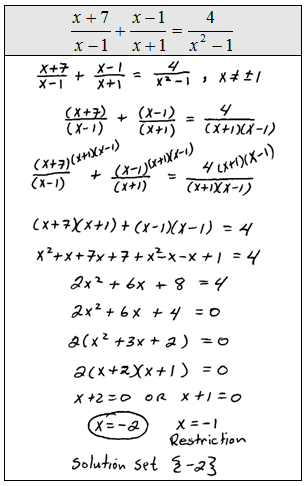 x + 7 / x − 1 + x − 1 / x + 1 = 4 / x² − 1
x+7 / x-1 + x-1 / x+1 = 4 / x²-1 , x ≠ ±1
(x+7) / (x-1) + (x-1) / (x+1) = 4 / (x+1)(x-1)
(x+7)(x+1)(x-1) / (x-1) + (x-1)(x+1)(x-1) / (x+1) = 4(x+1)(x-1) / (x+1)(x-1)
(x+7)(x+1) + (x-1)(x-1) = 4
x²+x+7x+7+x²-x-x+1 = 4
2x² + 6x + 8 = 4
2x² + 6x + 4 = 0
2(x² + 3x + 2) = 0
2(x+2)(x+1) = 0
x+2=0 OR x+1=0
x=-2 x=-1
Restriction
Solution set {-2}